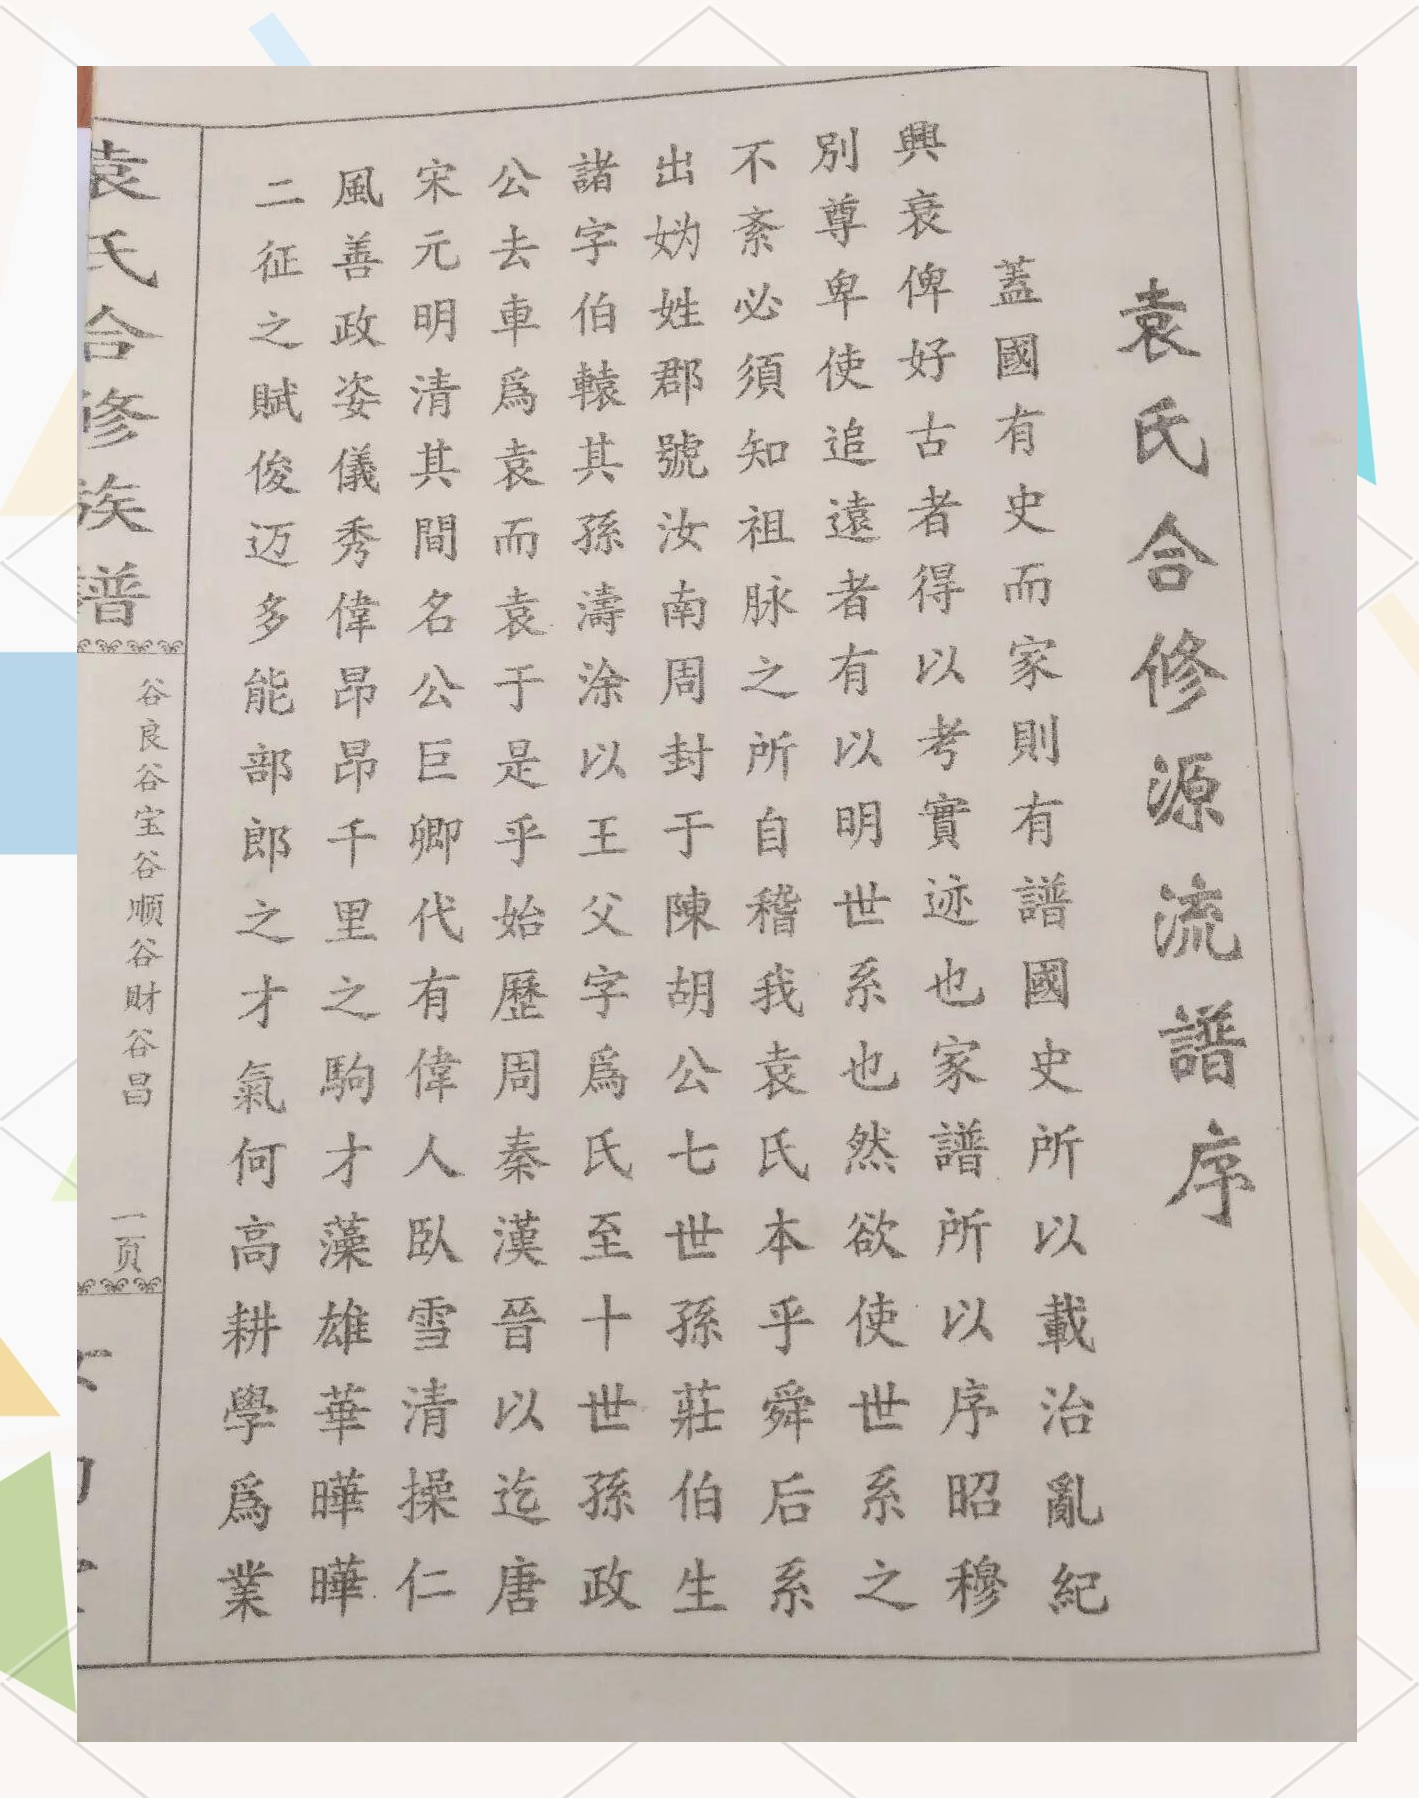 袁氏合修源流譜序
蓋國有史而家則有譜國史所以載治亂紀
興衰俾好古者得以考實迹也家譜所以序昭穆
別尊卑使追遠者有以明世系也然欲使世系之
不紊必須知祖脉之所自稽我袁氏本乎舜后系
出妫姓郡號汝南周封于陳胡公七世孫莊伯生
諸字伯轅其孫濤涂以王父字爲氏至十世孫政
公去車爲袁而袁于是乎始歷周秦漢晉以迄唐
宋元明清其間名公巨卿代有偉人臥雪清操仁
風善政姿儀秀偉昂昂千里之駒才藻雄華曄曄
二征之賦俊迈多能部郎之才氣何高耕學爲業
袁氏合修族譜
谷良谷宝谷顺谷财谷昌
一页